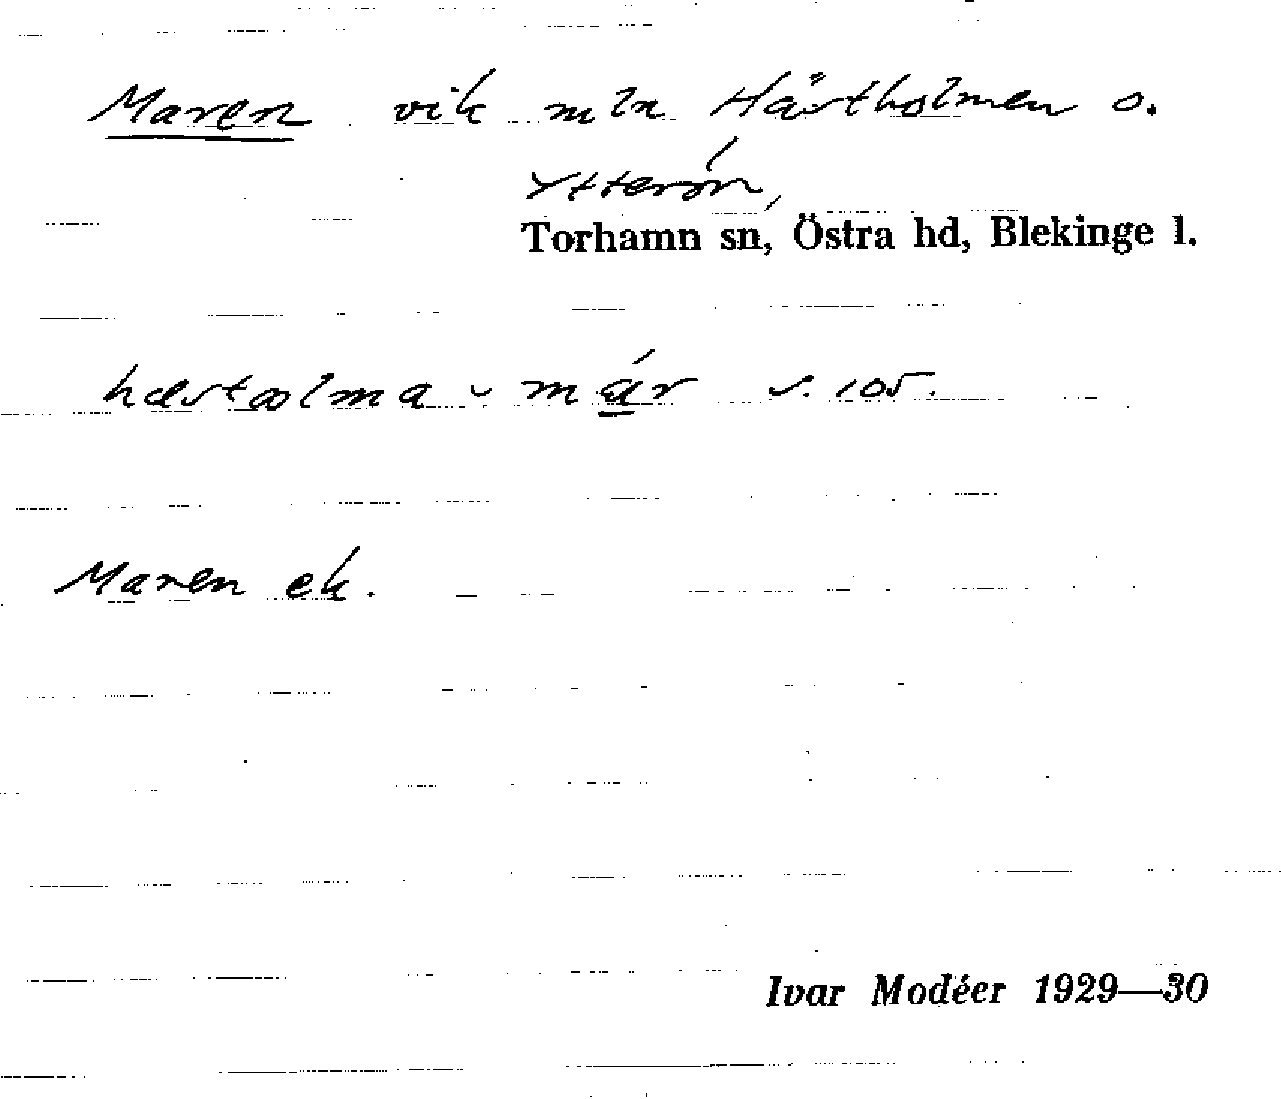 Maren vik mln Hästholmen o.
Ytterön,
Torhamn sn, Östra hd, Blekinge l.
hæstɷlma - már s. 105.
Maren ek.
Ivar Modéer 1929—30